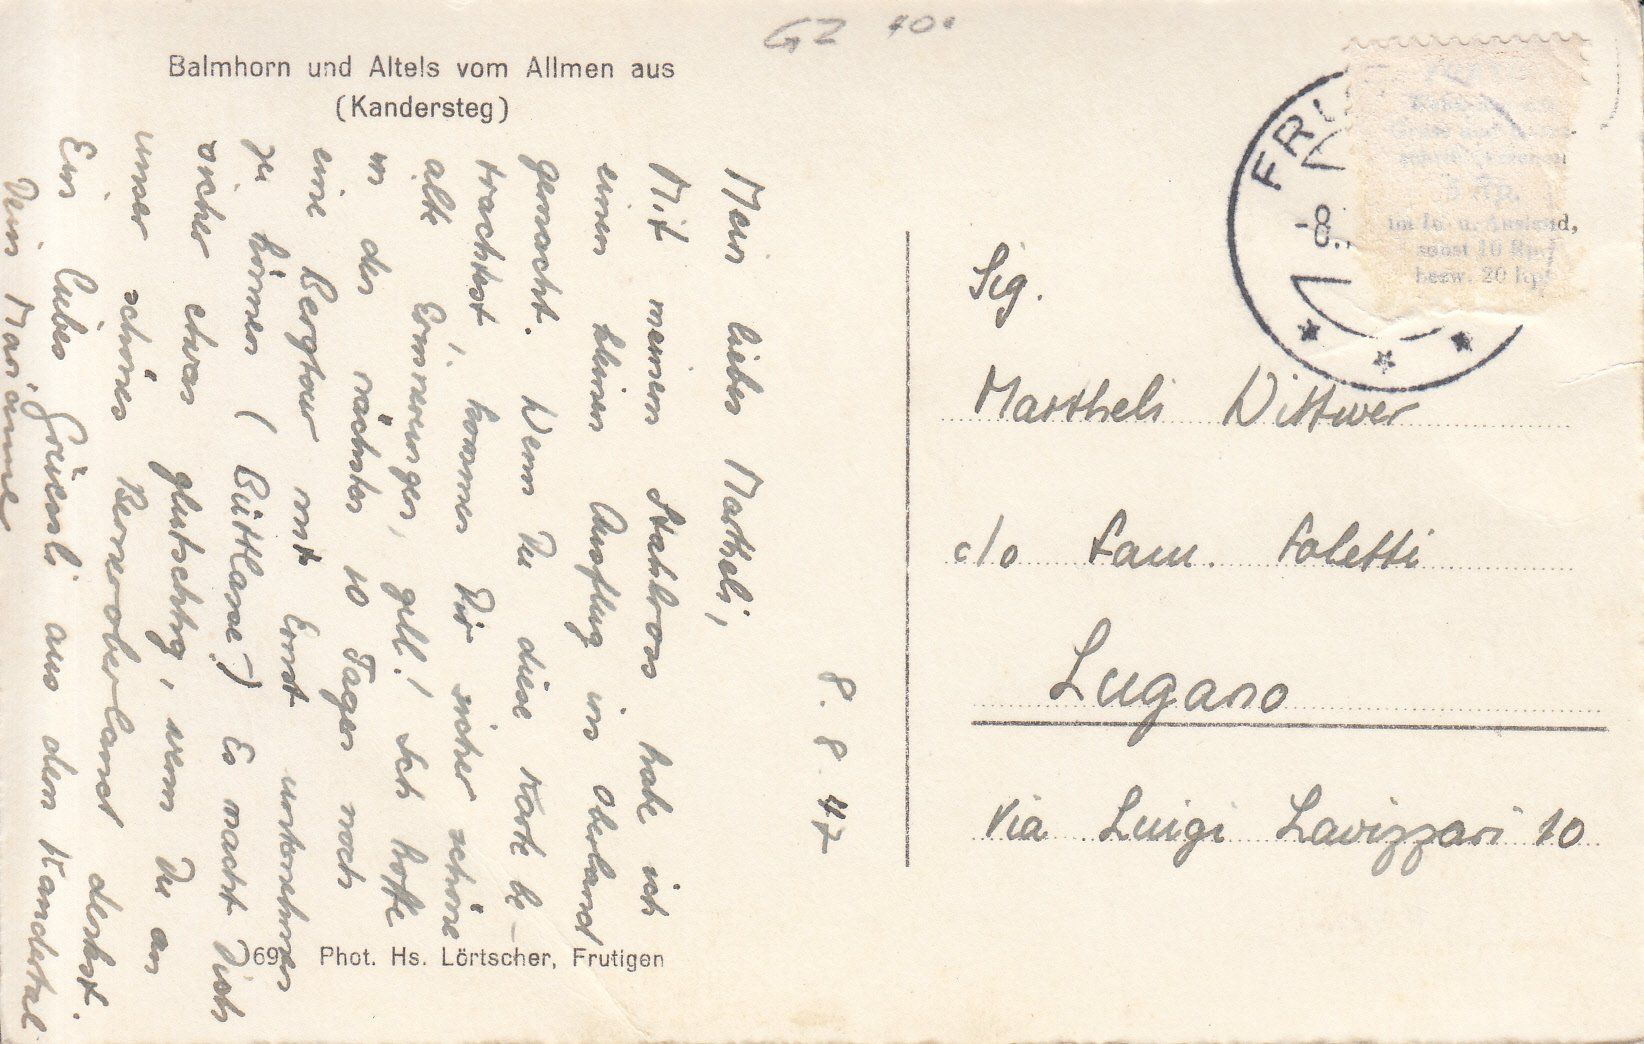 GZ 40.
Balmhorn und Altels vom Allmen aus
(Kandersteg)
8. 8. 47
Mein liebes Martheli,
Mit meinem Stahlross habe ich
einen kleinen Ausflug ins Oberland
gemacht. Wenn Du diese Karte be-
trachtest, kommen Dir sicher schöne
alte Erinnerungen, gell! Ich hoffe
in den nächsten 10 Tagen noch
eine Bergtour mit Ernst unternehmen
zu können (Büttlase?) Es macht Dich
sicher etwas "gluschtig", wenn Du an
unser schönes Berneroberland denkst.
Ein liebes Grüessli aus dem Kandertal
Dein Marianne
69 Phot. Hs. Lörtscher, Frutigen
FRU
-8.
5 Rp.
im In- u. Ausland,
sonst 10 Rp.
bezw. 20 Rp.
Sig.
Martheli Wittwer
c/o Fam. Foletti
Lugano
Via Luigi Lavizzari 10